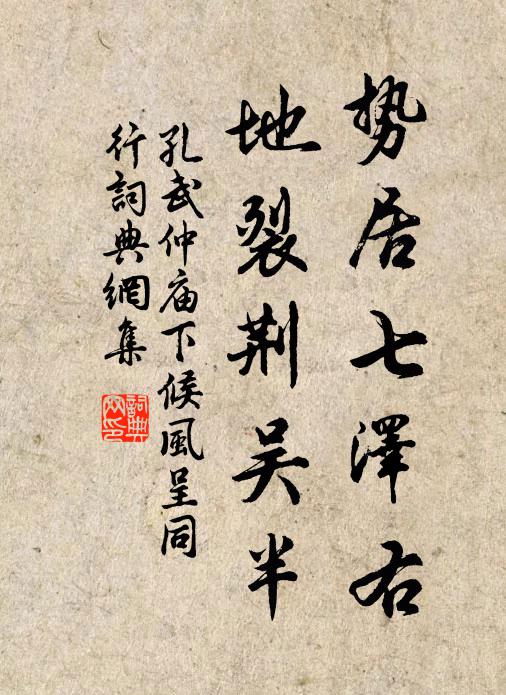 势居七澤右
地裂荆吴半
孔武仲庙下候風呈同
行詞典網集
詞典
网印